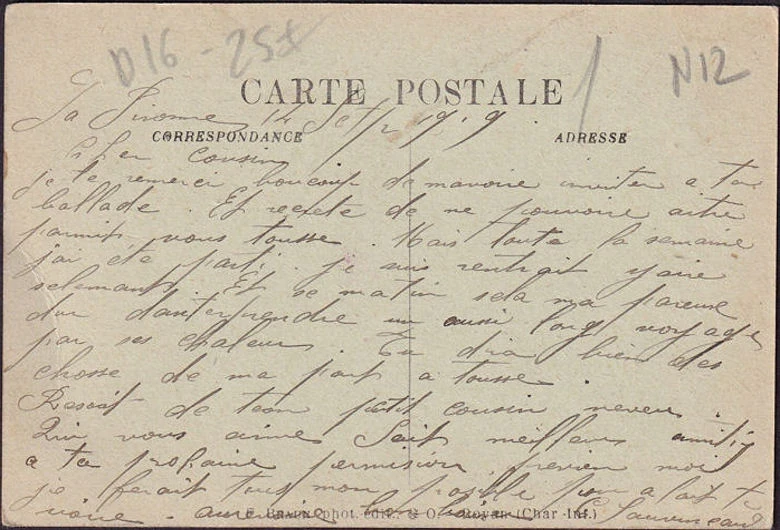 D16 - 25f
N12
CARTE POSTALE
La 14 Sept 1919
CORRESPONDANCE
ADRESSE
Cher cousin
je te remerci boucoup de mavoire inviter a ta
ballade. Et regrete de ne pouvoire aitre
parmit vous tousse. Mais toute la semaine
j'ai été parti. je suis rentrait yaire
selemant. Et se matin sela ma pareue
dur dantreprendre un aussi long voyage
par ses chaleurs. Tu dira bien des
chosse de ma part a tousse.
Resoit de ton petit cousin neveu.
Qui vous aime Sait meilleurs amitiy
a ta prochaine permision previen moi
je ferait tous mon possible pour alait te
voire
phot. édit. Royan (Char.-Inf.)